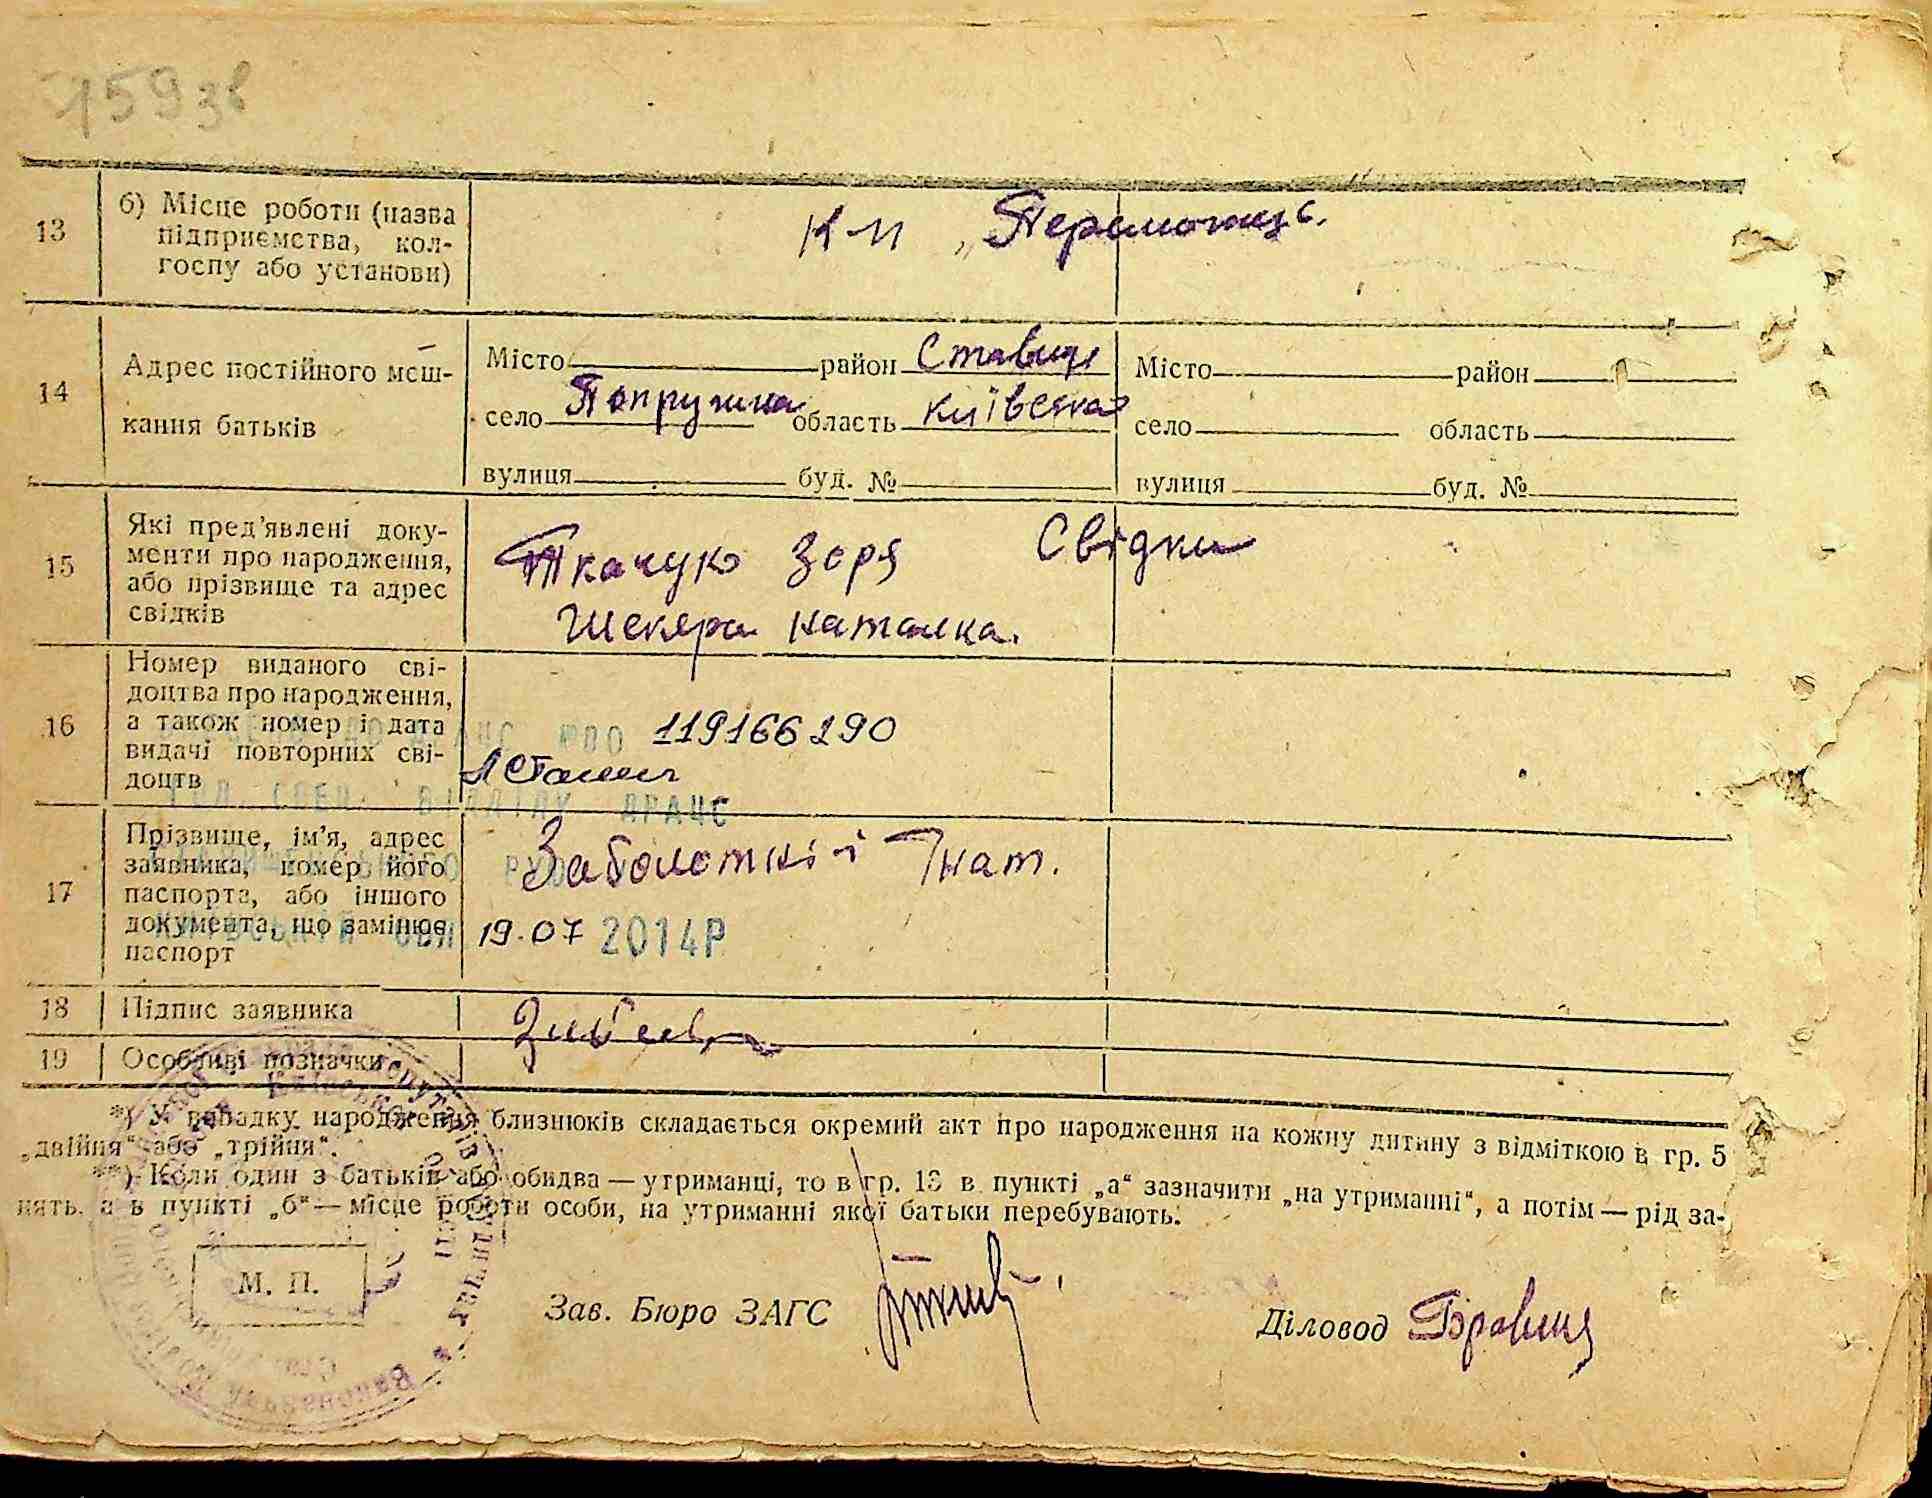 159зв
13 б) Місце роботи (назва підприємства, колгоспу або установи)
к-п „Переможець.
14 Адрес постійного меш-
кання батьків
Місто район Ставищ
село Попружна область Київська
вулиця буд. №
Місто район
село область
вулиця буд. №
15 Які пред'явлені доку-
менти про народження,
або прізвище та адрес
свідків
Ткачук Зоря Свідки
Шекера Наталка.
16 Номер виданого сві-
доцтва про народження,
а також номер і дата
видачі повторних сві-
доцтв
119166290
СПЕЦ. ВІДДІЛУ ДРАЦС
17 Прізвище, ім'я, адрес
заявника, номер його
паспорта, або іншого
документа, що замінює
паспорт
Заболотній Гнат.
19.07 2014Р
18 Підпис заявника
19 Особливі позначки
*) У випадку народження близнюків складається окремий акт про народження на кожну дитину з відміткою в гр. 5
„двійня“ або „трійня“.
**) Коли один з батьків або обидва — утриманці, то в гр. 13 в пункті „а“ зазначити „на утриманні“, а потім — рід за-
нять, а в пункті „б“ — місце роботи особи, на утриманні якої батьки перебувають.
М. П.
Зав. Бюро ЗАГС
Діловод